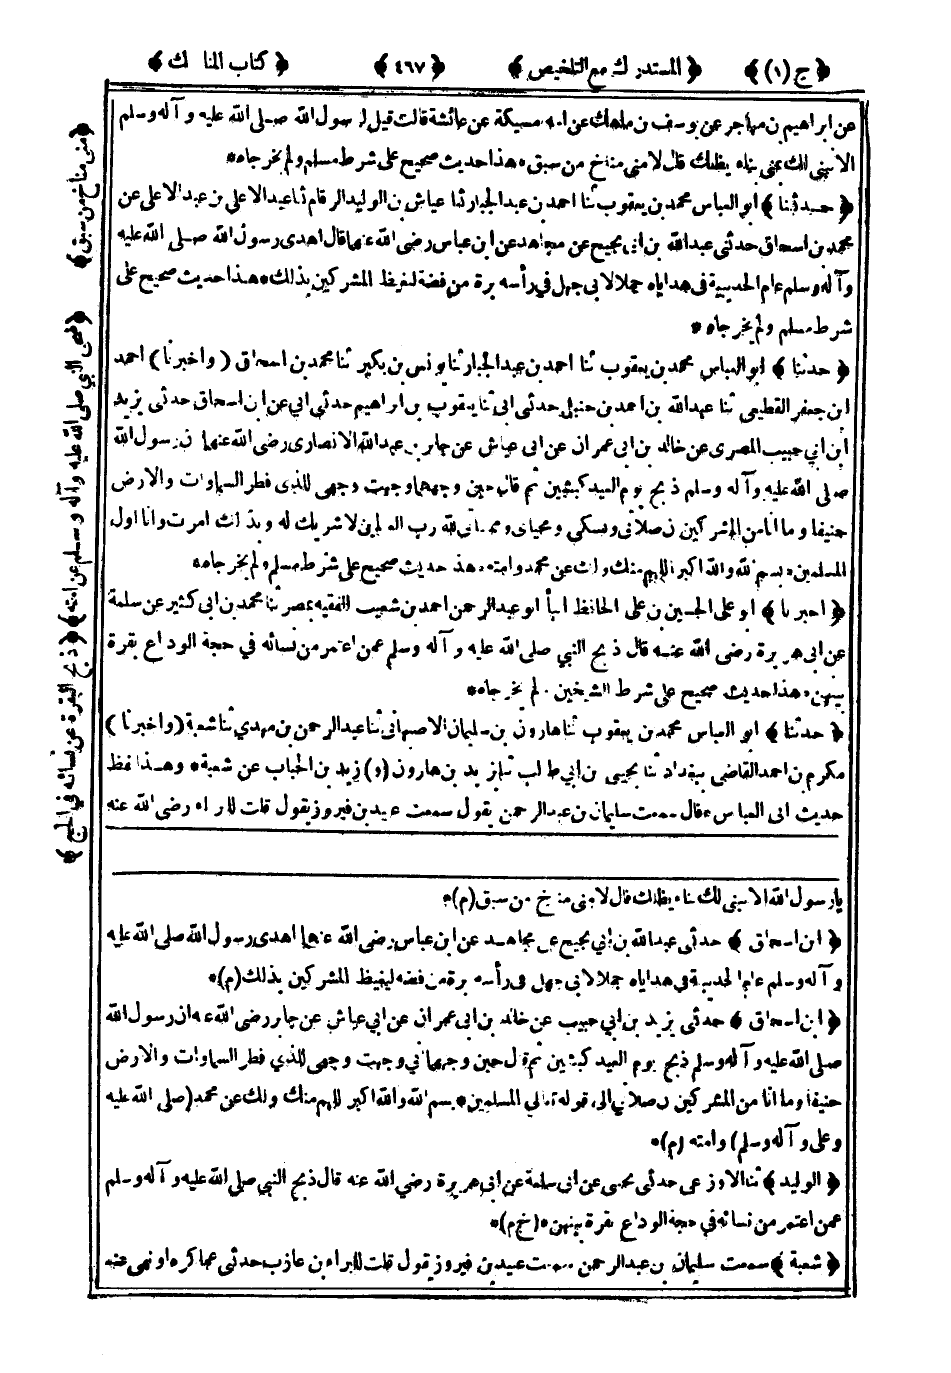 ﴿ ج (١) ﴾ ﴿ المستدرك مع التلخيص ﴾ ﴿ ٤٦٧ ﴾ ﴿ كتاب المناسك ﴾
عن ابراهيم بن مهاجر عن يوسف بن ماهك عن امه مسيكة عن عائشة قالت قيل لرسول الله صلى الله عليه وآله وسلم
الا نبني لك بمنى بناء يظلك قال لا منى مناخ من سبق * هذا حديث صحيح على شرط مسلم ولم يخرجاه *
﴿ حدثنا ﴾ ابو العباس محمد بن يعقوب ثنا احمد بن عبد الجبار ثنا عياش بن الوليد الرقام ثنا عبد الاعلى بن عبد الاعلى عن
محمد بن اسحاق حدثني عبد الله بن ابي نجيح عن مجاهد عن ابن عباس رضي الله عنهما قال اهدى رسول الله صلى الله عليه
وآله وسلم عام الحديبية في هداياه جملا لابي جهل في رأسه برة من فضة ليغيظ المشركين بذلك * هذا حديث صحيح على
شرط مسلم ولم يخرجاه *
﴿ حدثنا ﴾ ابو العباس محمد بن يعقوب ثنا احمد بن عبد الجبار ثنا يونس بن بكير ثنا محمد بن اسحاق ( واخبرنا ) احمد
ابن جعفر القطيعي ثنا عبد الله بن احمد بن حنبل حدثني ابي ثنا يعقوب بن ابراهيم حدثني ابي عن ابن اسحاق حدثني يزيد
ابن ابي حبيب المصري عن خالد بن ابي عمران عن ابي عياش عن جابر بن عبد الله الانصاري رضي الله عنهما ان رسول الله
صلى الله عليه وآله وسلم ذبح يوم العيد كبشين ثم قال حين وجههما وجهت وجهي للذي فطر السماوات والارض
حنيفا وما انا من المشركين ان صلاتي ونسكي ومحياي ومماتي لله رب العالمين لا شريك له وبذلك امرت وانا اول
المسلمين * بسم الله والله اكبر اللهم منك ولك عن محمد وامته * هذا حديث صحيح على شرط مسلم ولم يخرجاه *
﴿ اخبرنا ﴾ ابو علي الحسين بن علي الحافظ انبأ ابو عبد الرحمن احمد بن شعيب الفقيه بمصر ثنا محمد بن ابي كثير عن سلمة
عن ابي هريرة رضي الله عنه قال ذبح النبي صلى الله عليه وآله وسلم عمن اعتمر من نسائه في حجة الوداع بقرة
بينهن * هذا حديث صحيح على شرط الشيخين ولم يخرجاه *
﴿ حدثنا ﴾ ابو العباس محمد بن يعقوب ثنا هارون بن سليمان الاصبهاني ثنا عبد الرحمن بن مهدي ثنا شعبة ( واخبرنا )
مكرم بن احمد القاضي ببغداد ثنا يحيى بن ابي طالب ثنا يزيد بن هارون (و) زيد بن الحباب عن شعبة * وهذا لفظ
حديث ابي العباس * قال سمعت سليمان بن عبد الرحمن يقول سمعت عبيد بن فيروز يقول قلت للبراء رضي الله عنه
يا رسول الله الا نبني لك بناء يظلك قال لا منى مناخ من سبق (م) *
﴿ ابن اسحاق ﴾ حدثني عبد الله بن ابي نجيح عن مجاهد عن ابن عباس رضي الله عنهما اهدى رسول الله صلى الله عليه
وآله وسلم عام الحديبية في هداياه جملا لابي جهل في رأسه برة من فضة ليغيظ المشركين بذلك (م) *
﴿ ابن اسحاق ﴾ حدثني يزيد بن ابي حبيب عن خالد بن ابي عمران عن ابي عياش عن جابر رضي الله عنه ان رسول الله
صلى الله عليه وآله وسلم ذبح يوم العيد كبشين ثم قال حين وجههما اني وجهت وجهي للذي فطر السماوات والارض
حنيفا وما انا من المشركين ان صلاتي الى قوله تعالى المسلمين * بسم الله والله اكبر اللهم منك ولك عن محمد (صلى الله عليه
وعلى وآله وسلم) وامته (م) *
﴿ الوليد ﴾ ثنا الاوزاعي حدثني يحيى عن ابي سلمة عن ابي هريرة رضي الله عنه قال ذبح النبي صلى الله عليه وآله وسلم
عمن اعتمر من نسائه في حجة الوداع بقرة بينهن * (خ م) *
﴿ شعبة ﴾ سمعت سليمان بن عبد الرحمن سمعت عبيد بن فيروز يقول قلت للبراء بن عازب حدثني عما كره او نهى عنه
﴿ منى مناخ من سبق ﴾
﴿ ضحى النبي صلى الله عليه وآله وسلم عن امته ﴾
﴿ ذبح البقرة عن نسائه في الحج ﴾